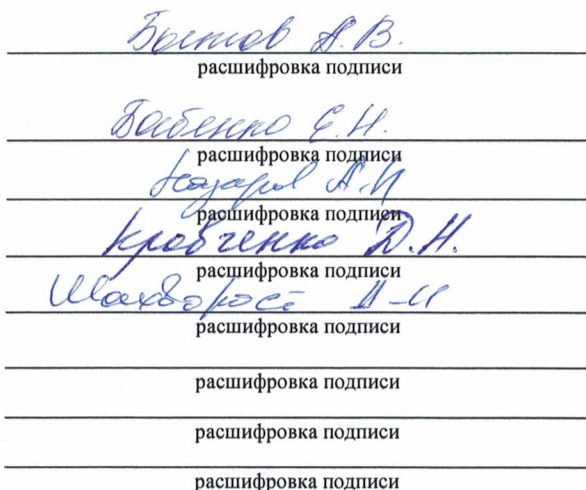 А.В.
расшифровка подписи
Бабенко Е.Н.
расшифровка подписи
Назаров А.И
расшифровка подписи
Кравченко Д.Н.
расшифровка подписи
Шахворост
расшифровка подписи
расшифровка подписи
расшифровка подписи
расшифровка подписи